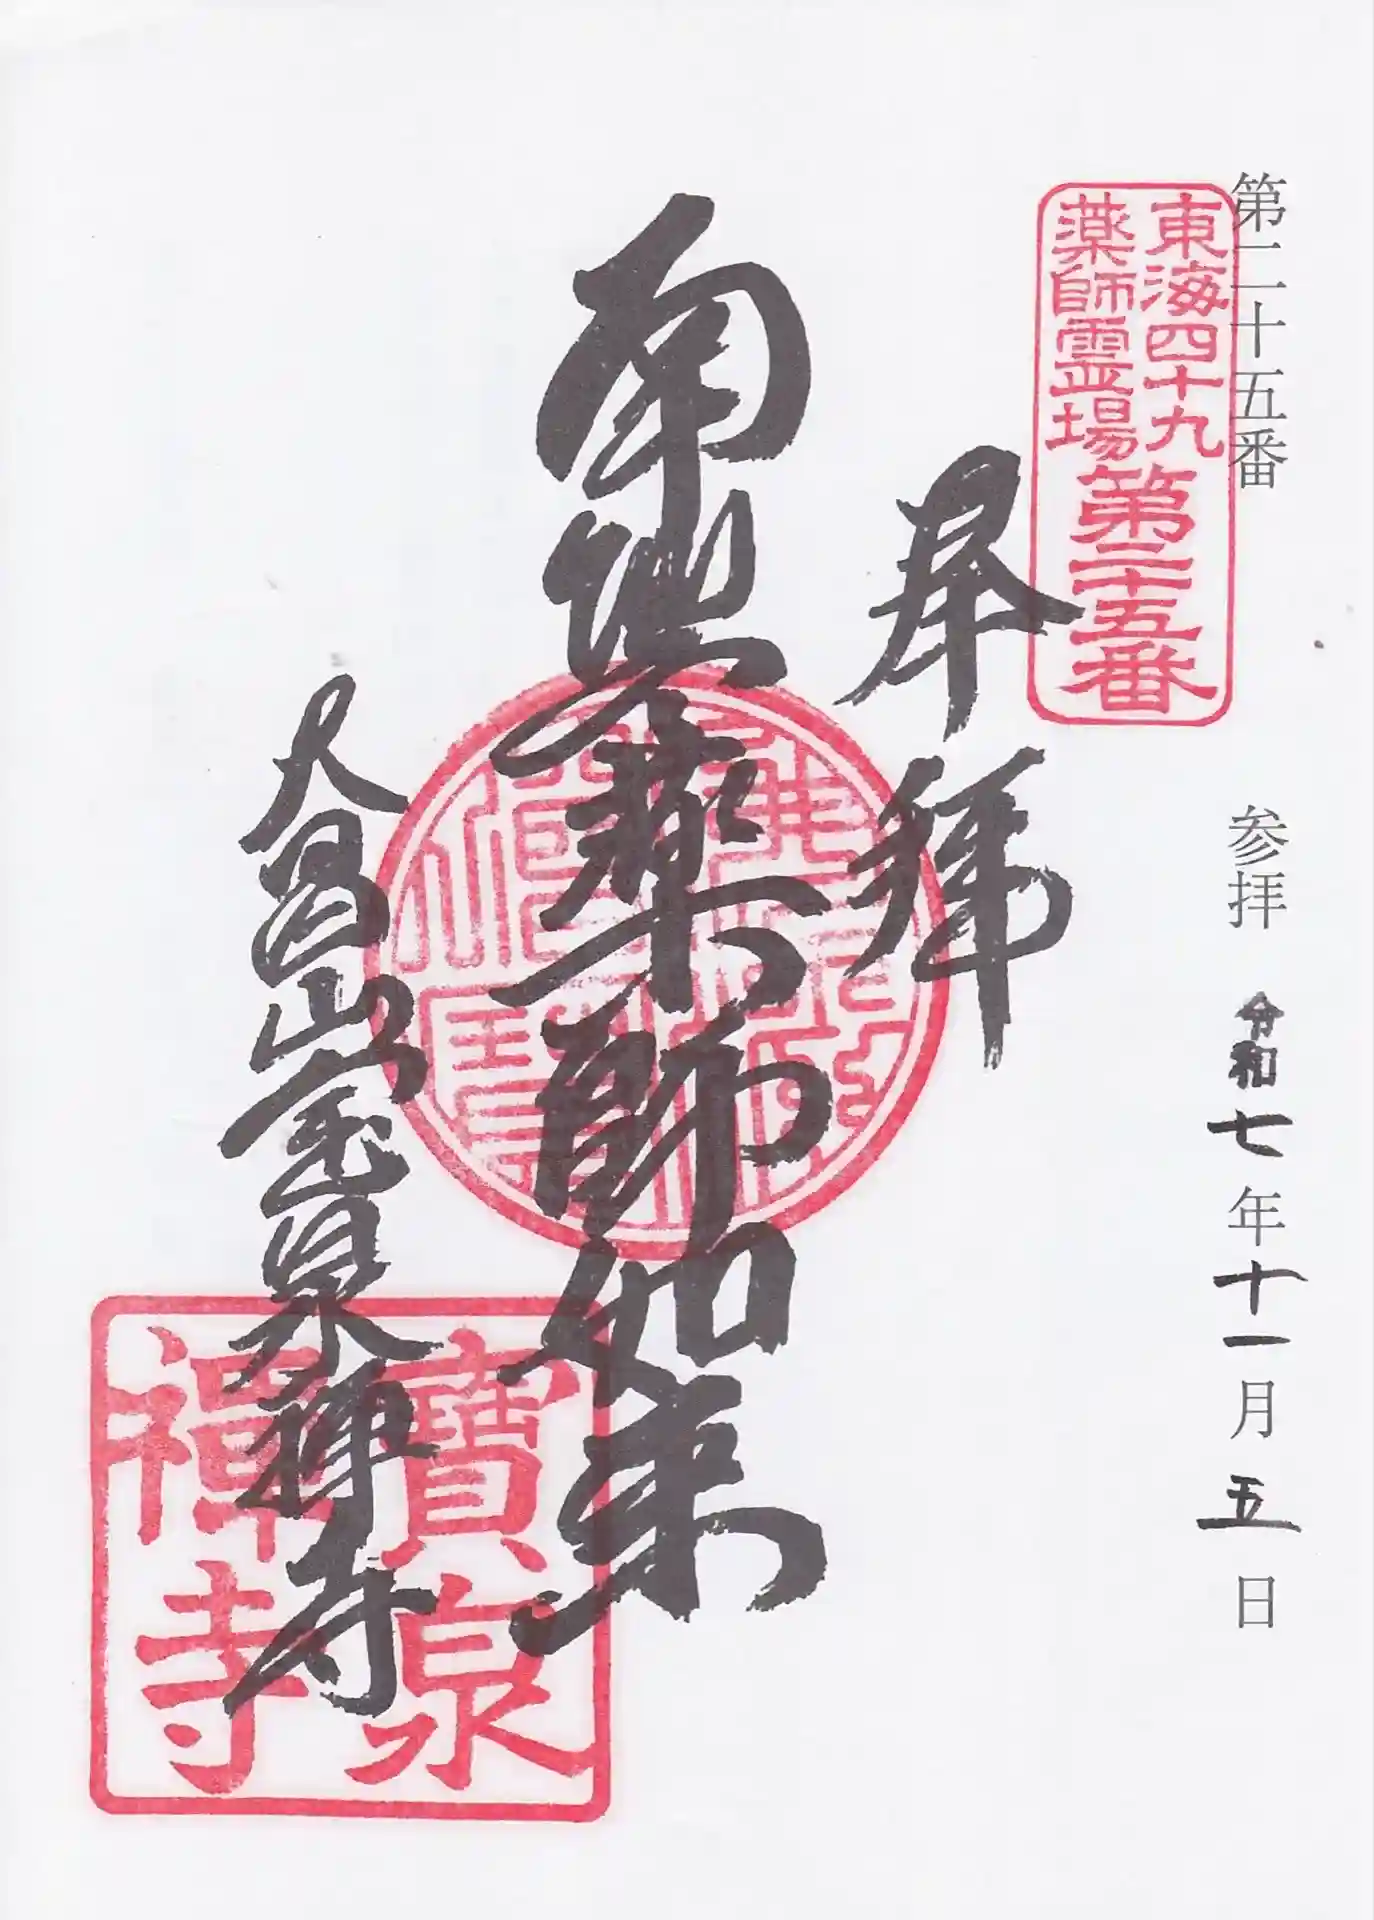 第二十五番 参拝 令和七年十一月五日
東海四十九
薬師霊場
第二十五番
拝
南無薬師如来
大昌山宝泉禅寺
寶泉
禪寺